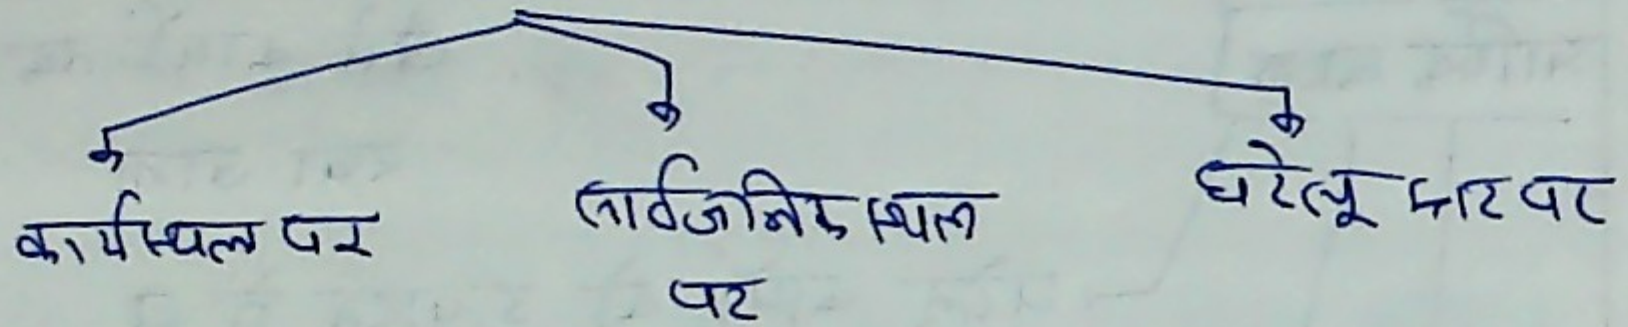 कार्यस्थल पर
सार्वजनिक स्थल
पर
घरेलू स्तर पर